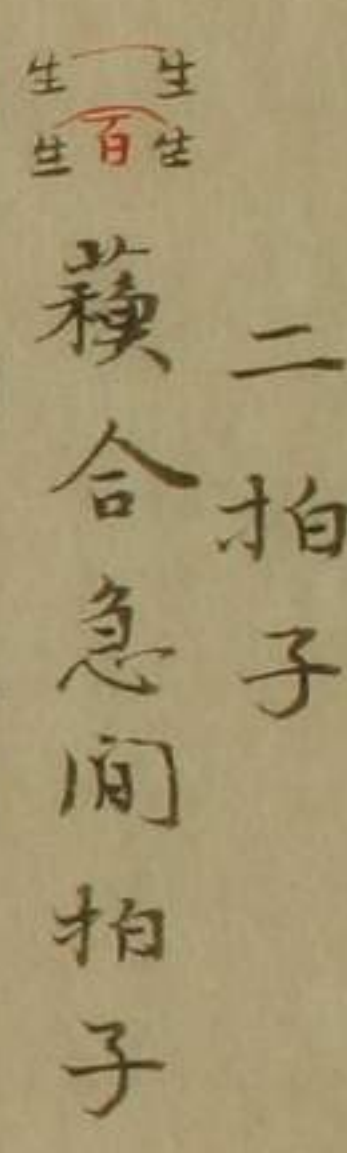 二拍子
生 生
生百生
蘓合急间拍子